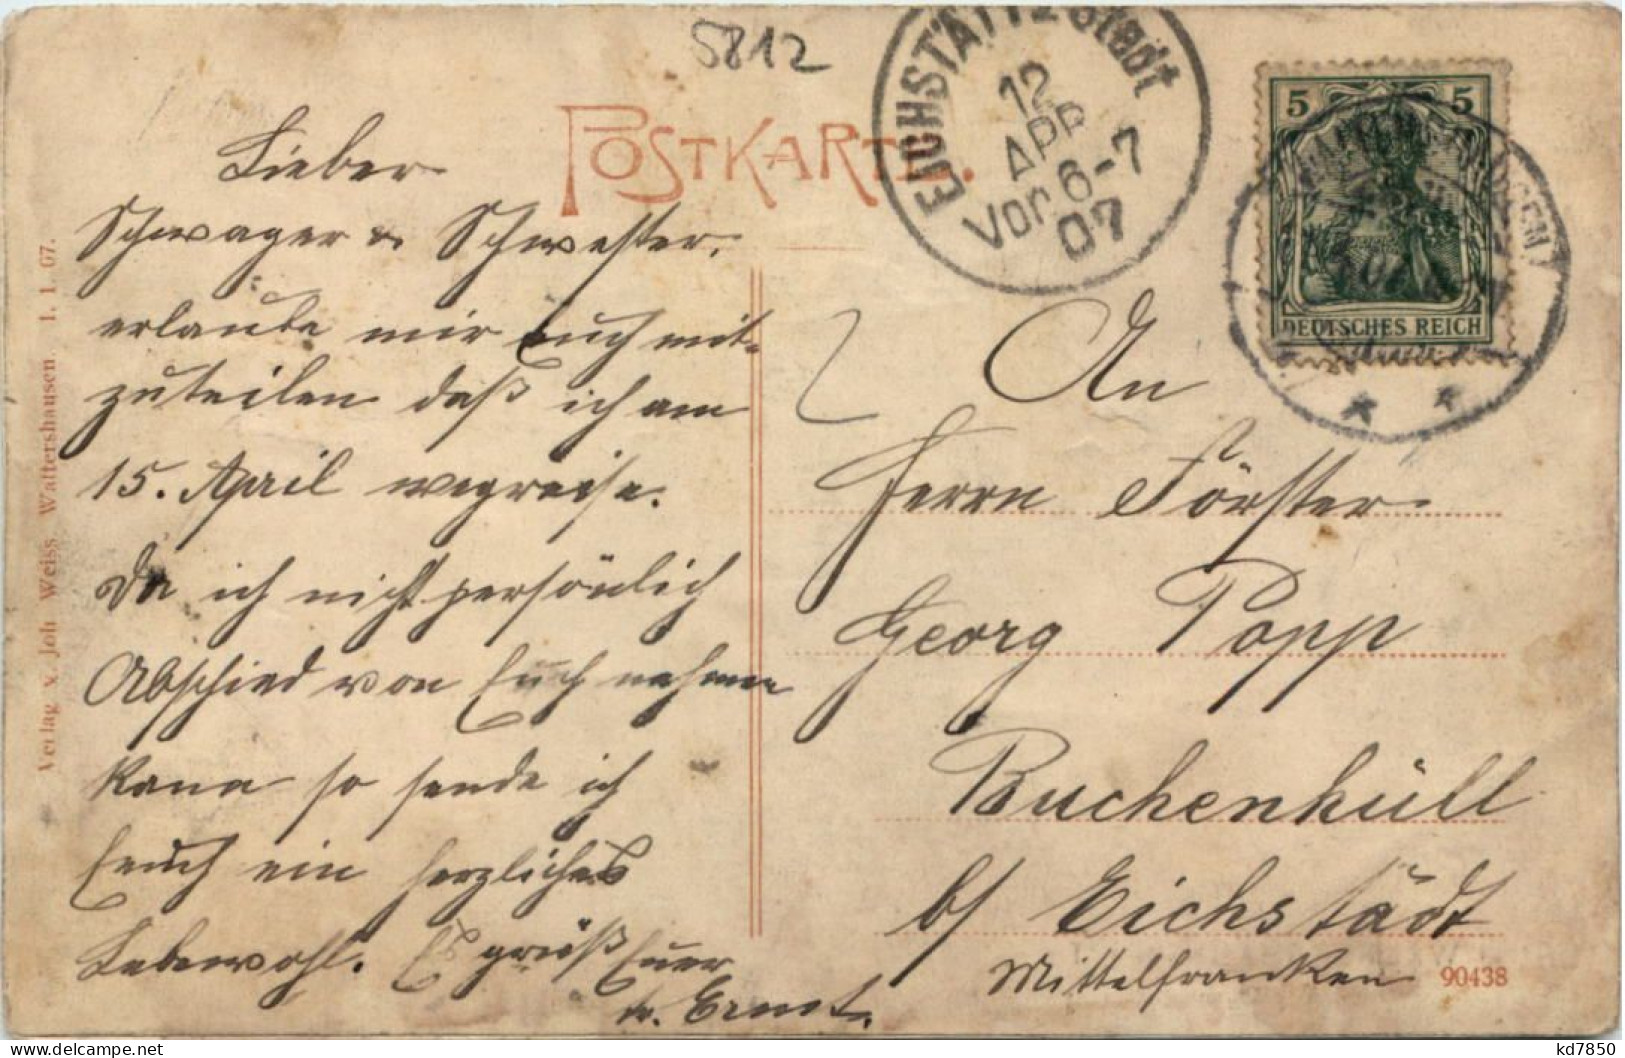 5812
POSTKARTE.
EICHSTÄTT 2 Stadt
12
APR
Vor 6-7
07
5 5
DEUTSCHES REICH
Lieber
Schwager u. Schwester.
erlaube mir Euch mit-
zuteilen daß ich am
15. April wegreise.
Da ich nicht persönlich
Abschied von Euch nehmen
kann so sende ich
Euch ein herzliches
Lebewohl. Es grüßt Euer
Ernst.
An
Herrn Förster
Georg Popp
Buchenhüll
b/ Eichstädt
Mittelfranken
90438
Verlag v. Joh. Weiss Wattershausen. 1. 1. 07.
kd7850